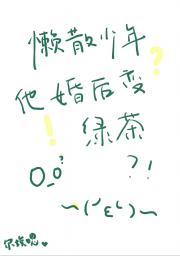 懒散少年
?
他婚后变
!
绿茶
O_O?
?!
~(´ε`)~